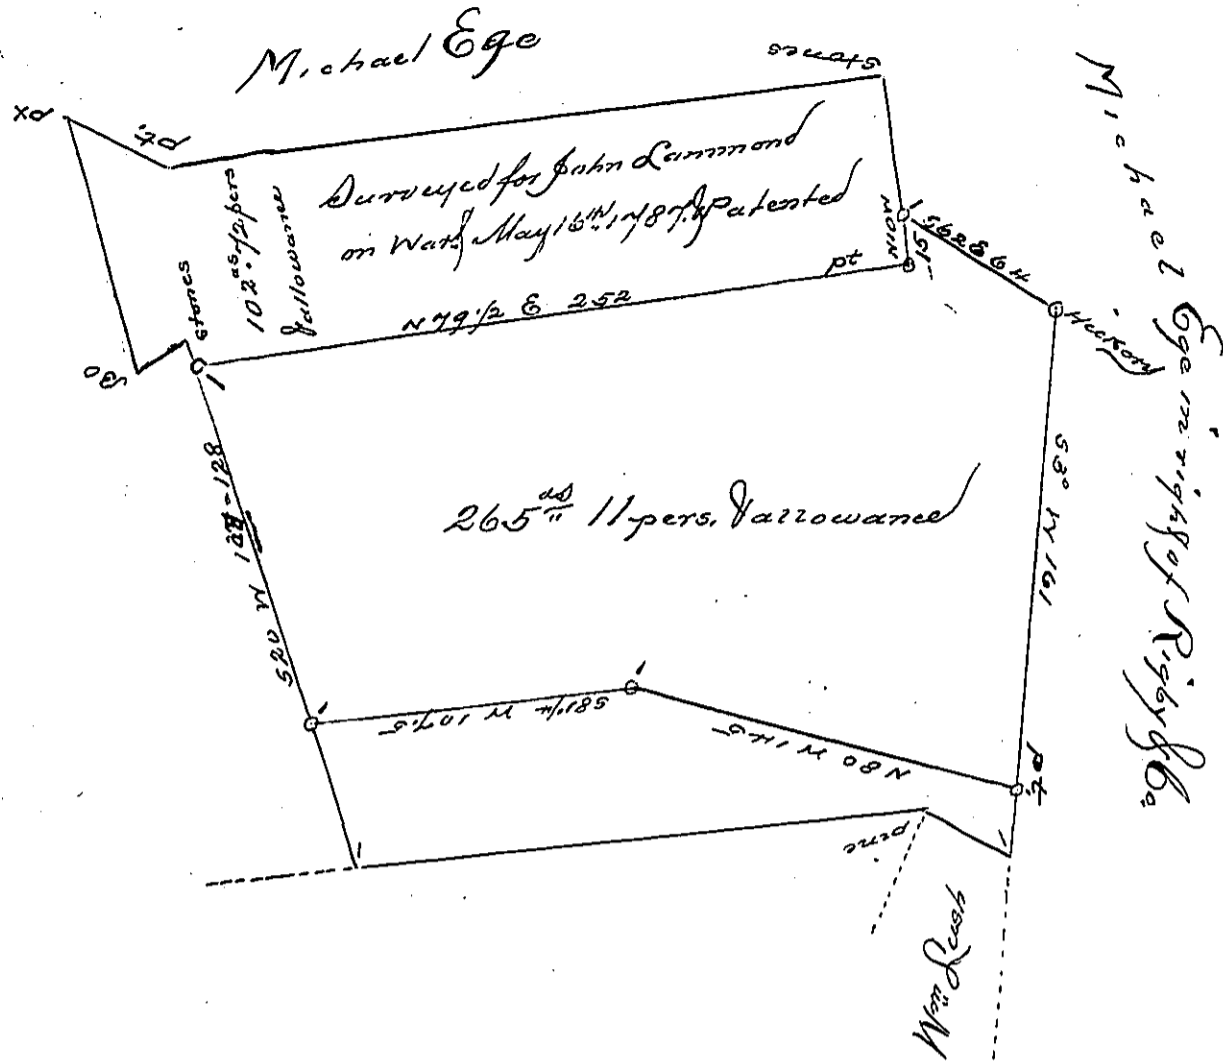 Michael Ege
stones
px
pt.
Surveyed for John Lammond
on Wart. May 16th 1787 & Patented
102 as 72 pers
& allowance
stones
pt
N 79 1/2 E 252
15
Hickory
Michael Ege in right of Rigby & Co.
S 3° W 161
265 as 11 pers. & allowance
128
S 20 W
S 81 1/4 W 107.5
N 80 W 145
pt.
pine
Wm Rush